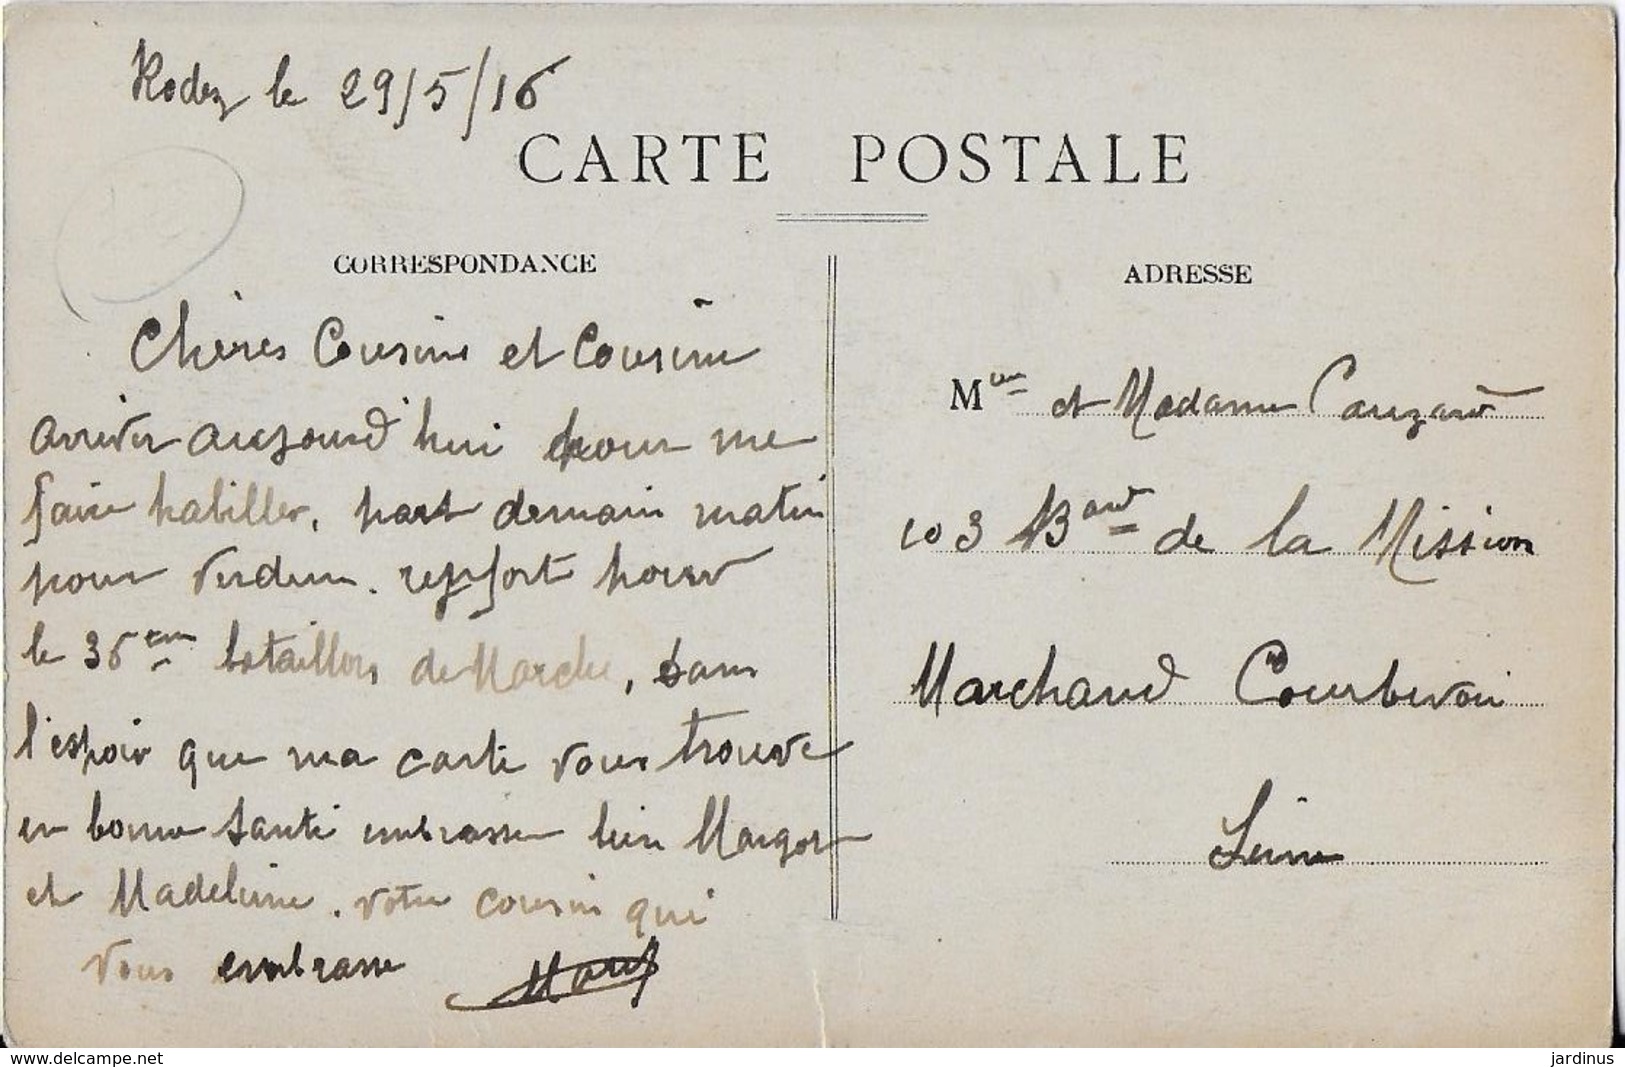 Rodez le 29/5/16
CARTE POSTALE
CORRESPONDANCE
Chères Cousins et Cousine
arriver aujourd'hui pour me
faire habiller, part demain matin
pour Verdun. renfort pour
le 36ème bataillons de Marche, dans
l'espoir que ma carte vous trouve
en bonne santé embrasser bien Margot
et Madeleine. votre cousin qui
vous embrasse
ADRESSE
M et Madame
103 de la Mission
Marchand Courbevoie
Seine
www.delcampe.net
jardinus